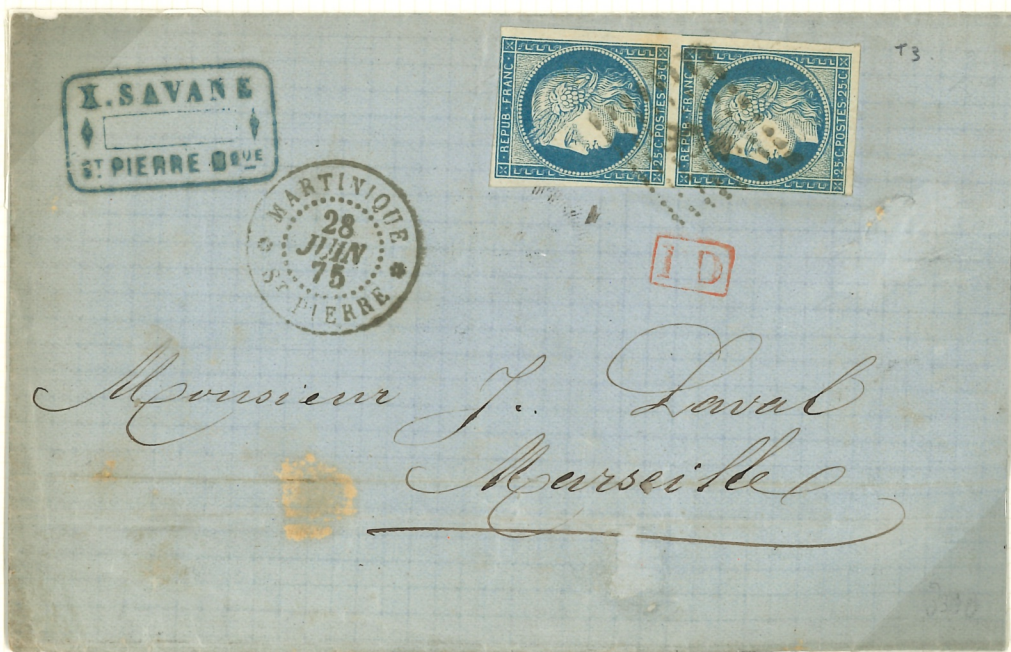 X. SAVANE
ST PIERRE MQUE
REPUB·FRANC·
25·C·POSTES·25·C
REPUB·FRANC·
25·C·POSTES·25·C
T3
MARTINIQUE
28
JUIN
75
ST PIERRE
I D
Monsieur J. Laval
Marseille